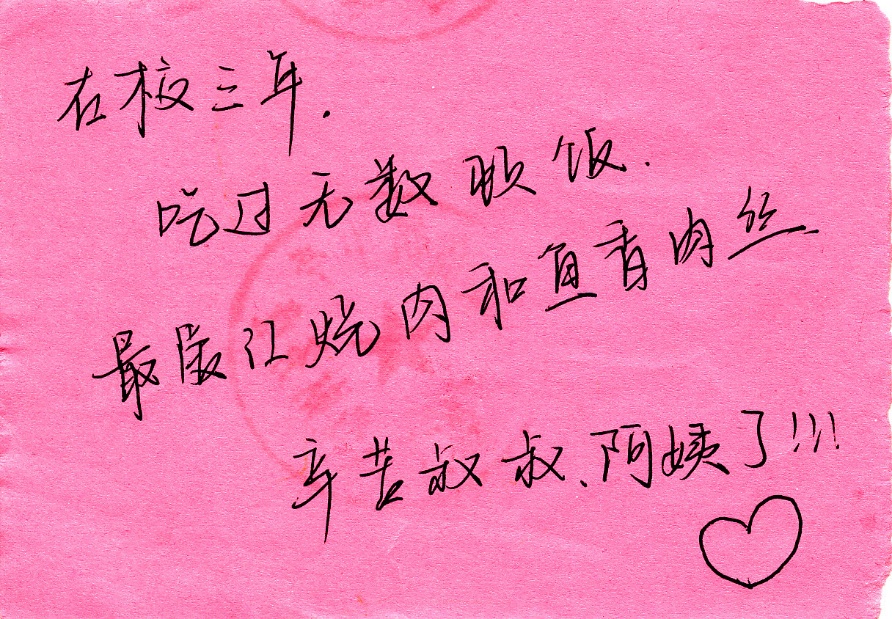 在校三年.
吃过无数顿饭.
最爱红烧肉和鱼香肉丝
辛苦叔叔、阿姨了!!!